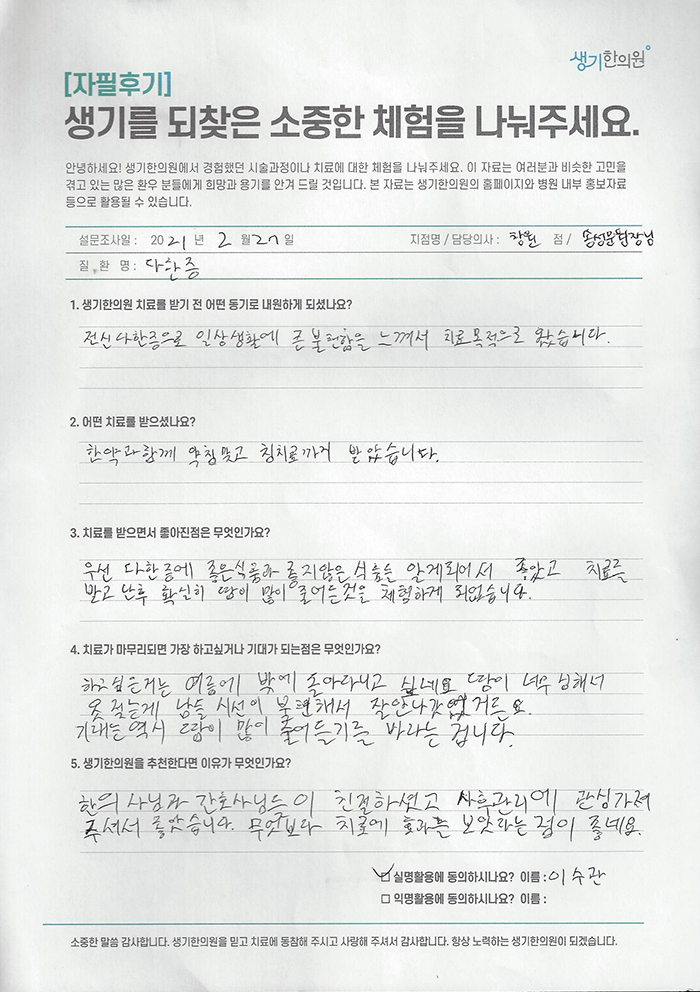 생기한의원
[자필후기]
생기를 되찾은 소중한 체험을 나눠주세요.
안녕하세요! 생기한의원에서 경험했던 시술과정이나 치료에 대한 체험을 나눠주세요. 이 자료는 여러분과 비슷한 고민을
겪고 있는 많은 환우 분들에게 희망과 용기를 안겨 드릴 것입니다. 본 자료는 생기한의원의 홈페이지와 병원 내부 홍보자료
등으로 활용될 수 있습니다.
설문조사일 : 2021 년 2 월 27 일 지점명 / 담당의사 : 창원 점 / 송성문원장님
질 환 명 : 다한증
1. 생기한의원 치료를 받기 전 어떤 동기로 내원하게 되셨나요?
전신다한증으로 일상생활에 큰 불편함을 느껴서 치료목적으로 왔습니다.
2. 어떤 치료를 받으셨나요?
한약과함께 약침맞고 침치료까지 받았습니다.
3. 치료를 받으면서 좋아진점은 무엇인가요?
우선 다한증에 좋은식품과 좋지않은 식품을 알게되어서 좋았고 치료를
받고 난후 확실히 땀이 많이 줄어든것을 체험하게 되었습니다.
4. 치료가 마무리되면 가장 하고싶거나 기대가 되는점은 무엇인가요?
하고싶은거는 여름에 밖에 돌아다니고 싶네요 땀이 너무 심해서
옷 젖는게 남들 시선이 불편해서 잘안나갔었거든요.
기대는 역시 땀이 많이 줄어들기를 바라는 겁니다.
5. 생기한의원을 추천한다면 이유가 무엇인가요?
한의사님과 간호사님들이 친절하셨고 사후관리에 관심가져
주셔서 좋았습니다. 무엇보다 치료에 효과를 보았다는 점이 좋네요.
실명활용에 동의하시나요? 이름 : 이수관
익명활용에 동의하시나요? 이름 :
소중한 말씀 감사합니다. 생기한의원을 믿고 치료에 동참해 주시고 사랑해 주셔서 감사합니다. 항상 노력하는 생기한의원이 되겠습니다.